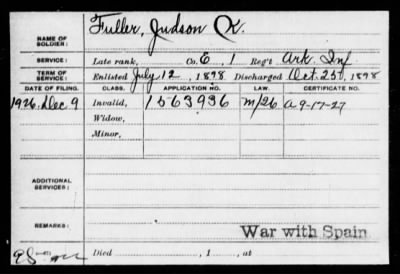 NAME OF SOLDIER: Fuller, Judson K.
SERVICE: Late rank, Co. E, 1 Reg't Ark. Inf
TERM OF SERVICE: Enlisted July 12, 1898 Discharged Oct. 25, 1898
DATE OF FILING. CLASS. APPLICATION NO. LAW. CERTIFICATE NO.
1926. Dec 9 Invalid, 1563936 m/26 a 9-17-27
Widow,
Minor,
ADDITIONAL SERVICES:
REMARKS: War with Spain
Died , 1 , at